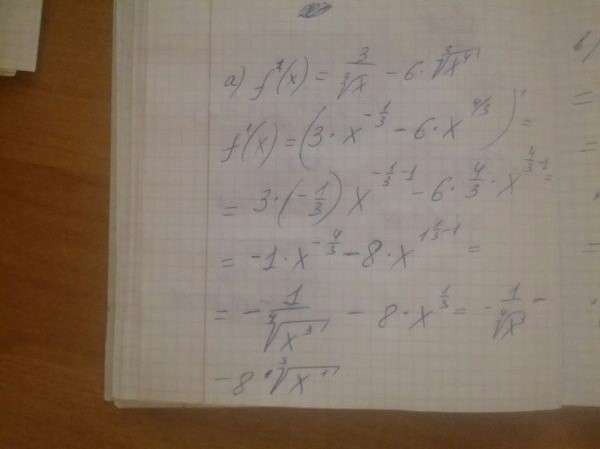 a) f'(x) = 3/∛x − 6·∛x⁴
f'(x) = (3·x^(-1/3) − 6·x^(4/3))' =
= 3·(−1/3) x^(-1/3-1) − 6·4/3·x^(4/3-1) =
= −1·x^(-4/3) − 8·x^(1 1/3-1) =
= − 1/∜x³ − 8·x^(1/3) = − 1/∜x −
− 8·∛x
в)